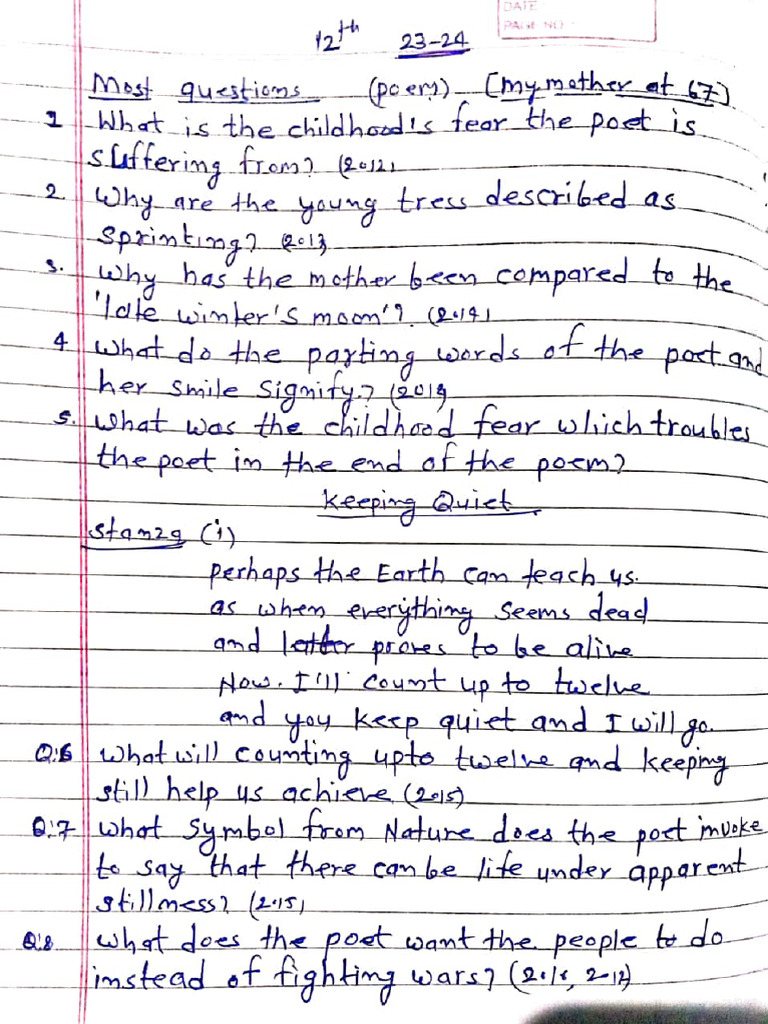 DATE
PAGE NO
12th 23-24
Most questions (poem) [My mother at 67]
1 What is the childhood's fear the poet is
suffering from? (2012)
2. Why are the young tress described as
sprinting? (2013)
3. Why has the mother been compared to the
'late winter's moon'? (2014)
4 What do the parting words of the poet and
her smile signify? (2019)
5. What was the childhood fear which troubles
the poet in the end of the poem?
Keeping Quiet
Stanza (i)
perhaps the Earth can teach us.
as when everything seems dead
and proves to be alive
Now. I'll count up to twelve
and you keep quiet and I will go.
Q:6 What will counting upto twelve and keeping
still help us achieve (2015)
Q:7 What symbol from Nature does the poet invoke
to say that there can be life under apparent
stillness? (2015)
Q:8 What does the poet want the people to do
instead of fighting wars?